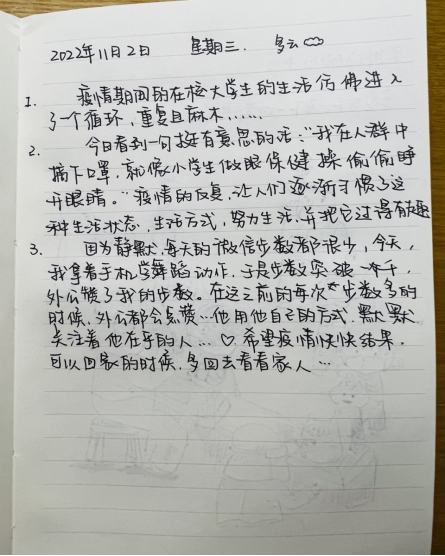 2022年11月2日 星期三. 多云
1. 疫情期间的在校大学生的生活仿佛进入
了一个循环,重复且麻木……
2. 今日看到一句挺有意思的话:"我在人群中
摘下口罩,就像小学生做眼保健操偷偷睁
开眼睛。"疫情的反复,让人们逐渐习惯了这
种生活状态,生活方式,努力生活,并把它过得有趣
3. 因为静默,每天的微信步数都很少,今天,
我拿着手机学舞蹈动作,于是步数突破一千,
外公赞了我的步数。在这之前的每次步数多的
时候,外公都会点赞…他用他自己的方式,默默
关注着他在乎的人…♡希望疫情快快结果,
可以回家的时候,多回去看看家人…